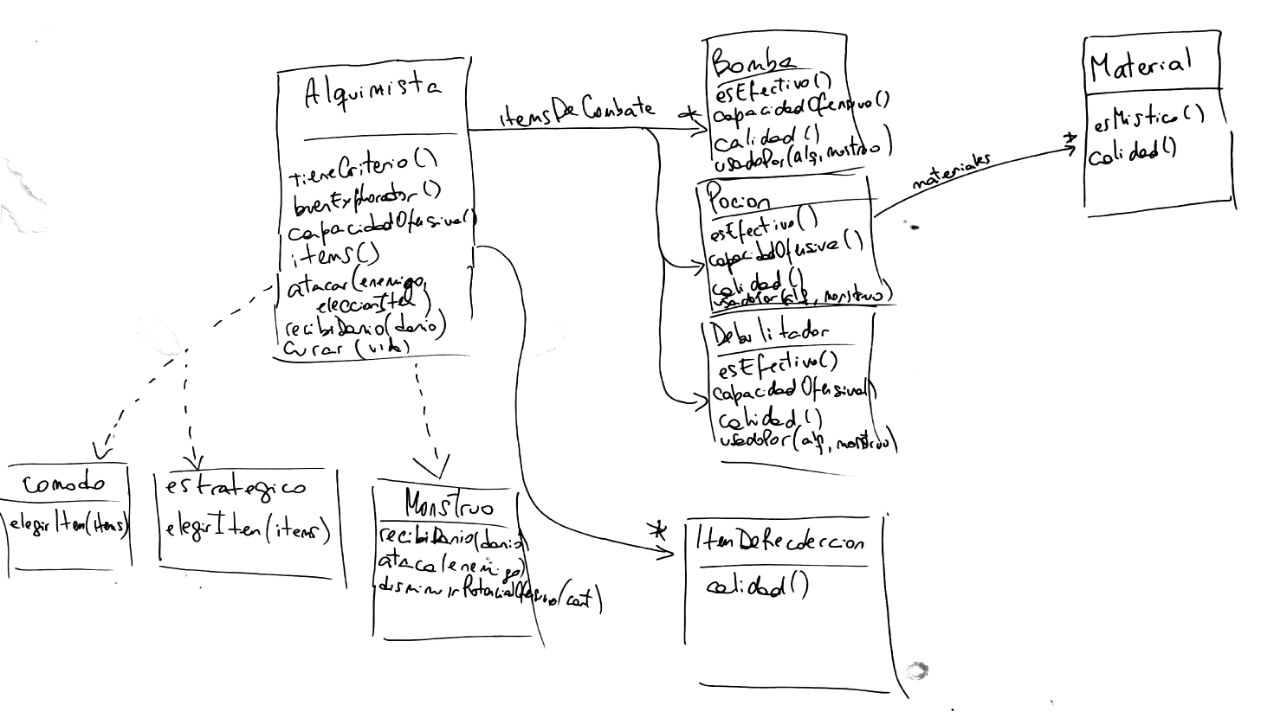 Alquimista
tieneCriterio()
buenExplorador()
capacidadOfensiva()
items()
atacar(enemigo,
eleccionItem)
recibiDanio(danio)
curar (vida)
itemsDeCombate
*
Bomba
esEfectivo()
capacidadOfensiva()
calidad()
usadoPor(alq, mostruo)
Pocion
esEfectivo()
capacidadOfensiva()
calidad()
usadoPor(alq, monstruo)
Debilitador
esEfectivo()
capacidadOfensiva()
calidad()
usadoPor(alq, monstruo)
materiales
*
Material
esMistico()
calidad()
comodo
elegirItem(items)
estrategico
elegirItem(items)
Monstruo
recibiDanio(danio)
ataca(enemigo)
disminuirPotencialOfensivo(cant)
*
ItemDeRecoleccion
calidad()